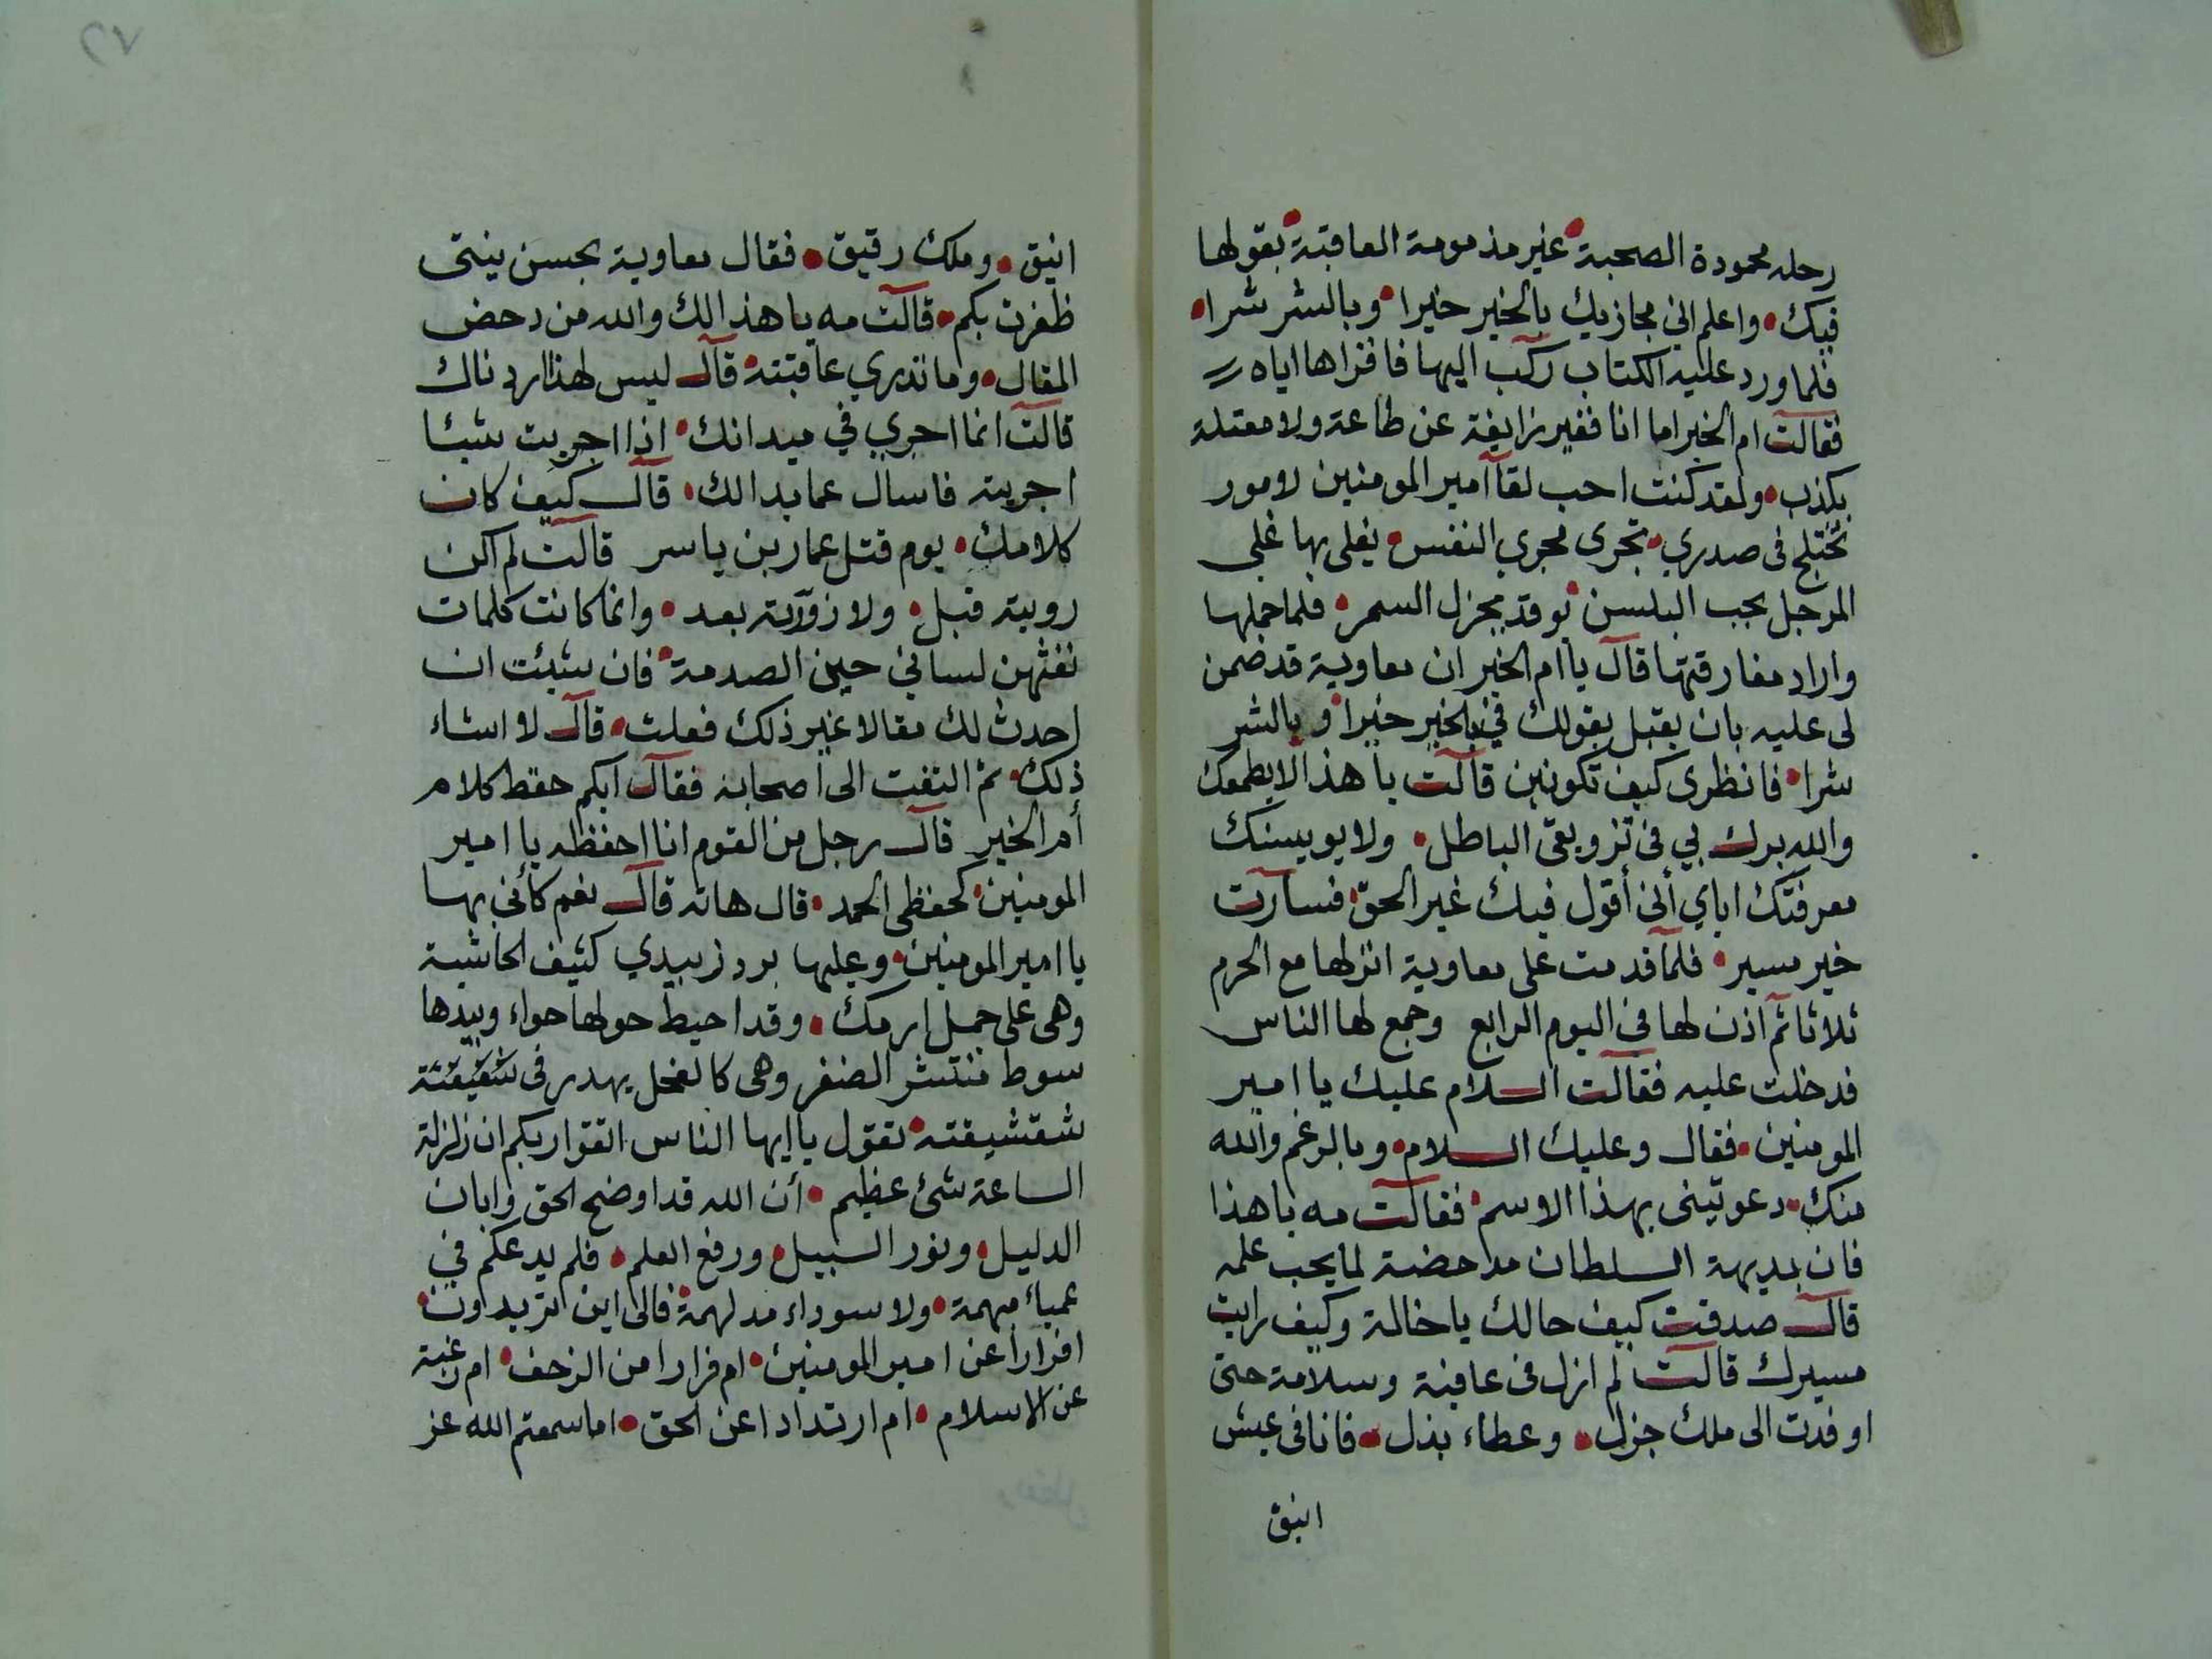 رحله محمودة الصحبة غير مذمومة العاقبة بقولها
فيك واعلم اني مجازيك بالخير خيرا وبالشر شرا
فلما ورد عليه الكتاب ركب اليها فاقراها اياه
فقالت ام الخير اما انا فغير زايغة عن طاعة ولا معتلة
بكذب ولقد كنت احب لقآ امير المومنين لامور
تختلج فى صدري تجرى مجرى النفس يغلى بها غلي
المرجل بحب البلسن توقد بجزل السمر فلما حملها
واراد مفارقتها قال يا ام الخير ان معاوية قد ضمن
لى عليه بان يقبل بقولك في بالخير خيرا وبالشر
شرا فانظرى كيف تكونين قالت يا هذا لا يطمعك
والله برك بي فى تزويقى الباطل ولا يويسنك
معرفتك اياي أنى أقول فيك غير الحق فسارت
خير مسير فلما قدمت على معاوية انزلها مع الحرم
ثلاثا ثم اذن لها فى اليوم الرابع وجمع لها الناس
فدخلت عليه فقالت السلام عليك يا امير
المومنين فقال وعليك السلام وبالرغم والله
منك دعوتينى بهذا الاسم فقالت مه يا هذا
فان بديهة السلطان مدحضة لما يحب علمه
قال صدقت كيف حالك يا خالة وكيف رايت
مسيرك قالت لم ازل فى عافية وسلامة حتى
اوفدت الى ملك جزل وعطاء بذل فانا فى عيش
انيق
انيق وملك رقيق فقال معاوية بحسن نيتى
ظفرت بكم قالت مه يا هذا لك والله من دحض
المقال وما تدري عاقبته قال ليس لهذا اردناك
قالت انما اجري في ميدانك اذا اجريت شيئا
اجريته فاسال عما بدا لك قال كيف كان
كلامك يوم قتل عمار بن ياسر قالت لم اكن
رويته قبل ولا زورته بعد وانما كانت كلمات
نفثهن لساني حين الصدمة فان شيئت ان
احدث لك مقالا غير ذلك فعلت قال لا اشاء
ذلك ثم التفت الى اصحابه فقال ايكم حفظ كلام
أم الخير قال رجل من القوم انا احفظه يا امير
المومنين كحفظى الحمد قال هاته قال نعم كأنى بها
يا امير المومنين وعليها برد زبيدي كثيف الحاشية
وهى على جمل ارمك وقد احيط حولها حواء وبيدها
سوط منتشر الضفر وهى كالفحل يهدر فى شقيقته
شقشيقته تقول يا ايها الناس اتقوا ربكم ان زلزلة
الساعة شئ عظيم أن الله قد اوضح الحق وابان
الدليل ونور السبيل ورفع العلم فلم يدعكم في
عمياء مبهمة ولا سوداء مدلهمة فالى اين تريدون
افرارا عن امير المومنين ام فرارا من الزحف ام رغبة
عن الاسلام ام ارتدادا عن الحق اما سمعتم الله عز